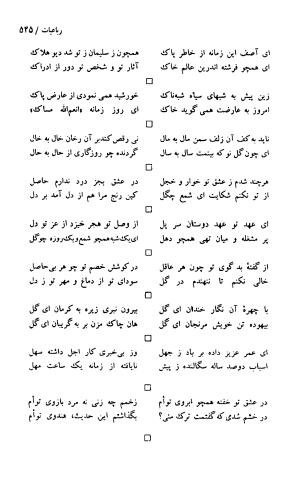 رباعیات / ۵۴۵
ای آصف این زمانه از خاطر پاک
همچون ز سلیمان ز تو شد دیو هلاک
ای همچو فرشته اندرین عالم خاک
آثار تو و شخص تو دور از ادراک
زین پیش به شبهای سیاه شبه‌ناک
خورشید همی نمودی از عارض پاک
امروز به عارضت همی گوید خاک
ای روز زمانه «انعم‌الله مساک»
ناید به کف آن زلف سمن مال به مال
نی رقص کند بر آن رخان خال به خال
ای چون گل نو که بینمت سال به سال
گردنده چو روزگاری از حال به حال
هرچند شدم ز عشق تو خوار و خجل
در عشق بجز درد ندارم حاصل
از تو نکنم شکایت ای شمع چگل
کین رنج مرا هم ز دل آمد بر دل
ای عهد تو عهد دوستان سر پل
از وصل تو هجر خیزد از عز تو ذل
پر مشغله و میان تهی همچو دهل
ای یک‌شبه همچو شمع و یک‌روزه چو گل
از گفتهٔ بد گوی تو چون هر عاقل
در کوشش خصم تو چو هر بی‌حاصل
خالی نکنم تا ننهندم در گل
سودای تو از دماغ و مهر تو ز دل
با چهرهٔ آن نگار خندان ای گل
بیرون نبری زیره به کرمان ای گل
بیهوده تن خویش مرنجان ای گل
هان چاک مزن بر به گریبان ای گل
ای عمر عزیز داده بر باد ز جهل
وز بی‌خبری کار اجل داشته سهل
اسباب دوصد ساله سگالنده ز پیش
نایافته از زمانه یک ساعت مهل
در عشق تو خفته همچو ابروی توأم
زخمم چه زنی نه مرد بازوی توأم
در خشم شدی که گفتمت ترک منی؟
بگذاشتم این حدیث، هندوی توأم